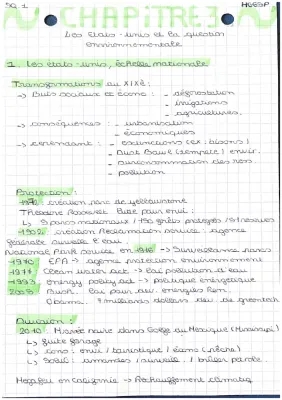 SQ 1
HGGSP
CHAPITRE 3
Les états-unis et la question
environnementale
1. Les états-unis, échelle nationale
Transformations au XIXè :
→ Buts sociaux et écono : - déforestation
- irrigations
- agricultures.
→ conséquences : - urbanisation
- économiques
→ cependant : - extinctions (ex : bisons)
- Dust Bowl (tempête) envir.
- surconsommation des ress.
- pollution
Protection :
création parc de yellowstone
Théodore Roosevelt lutte pour envi :
↳ 5 parcs nationaux / 150 forêts protégées / 51 réserves
1902 : création Reclamation Service : agence
fédérale surveille l'eau
National Park Service en 1916 → surveillance parcs
1970 : EPA → agence protection environnement
Clean water act → loi pollution d'eau
energy policy act → politique énergétique
Bush. loi pour du énergies Ren.
Obama : milliards dollars dev. de greentech
2010 : Marée noire dans Golfe du Mexique (Mississipi)
↳ fuite forage
↳ cons : envi / touristique / écono (pêche)
↳ Soluc : amendes / surveille / brûler pétrole
Megafeu en californie → Réchauffement climatiq